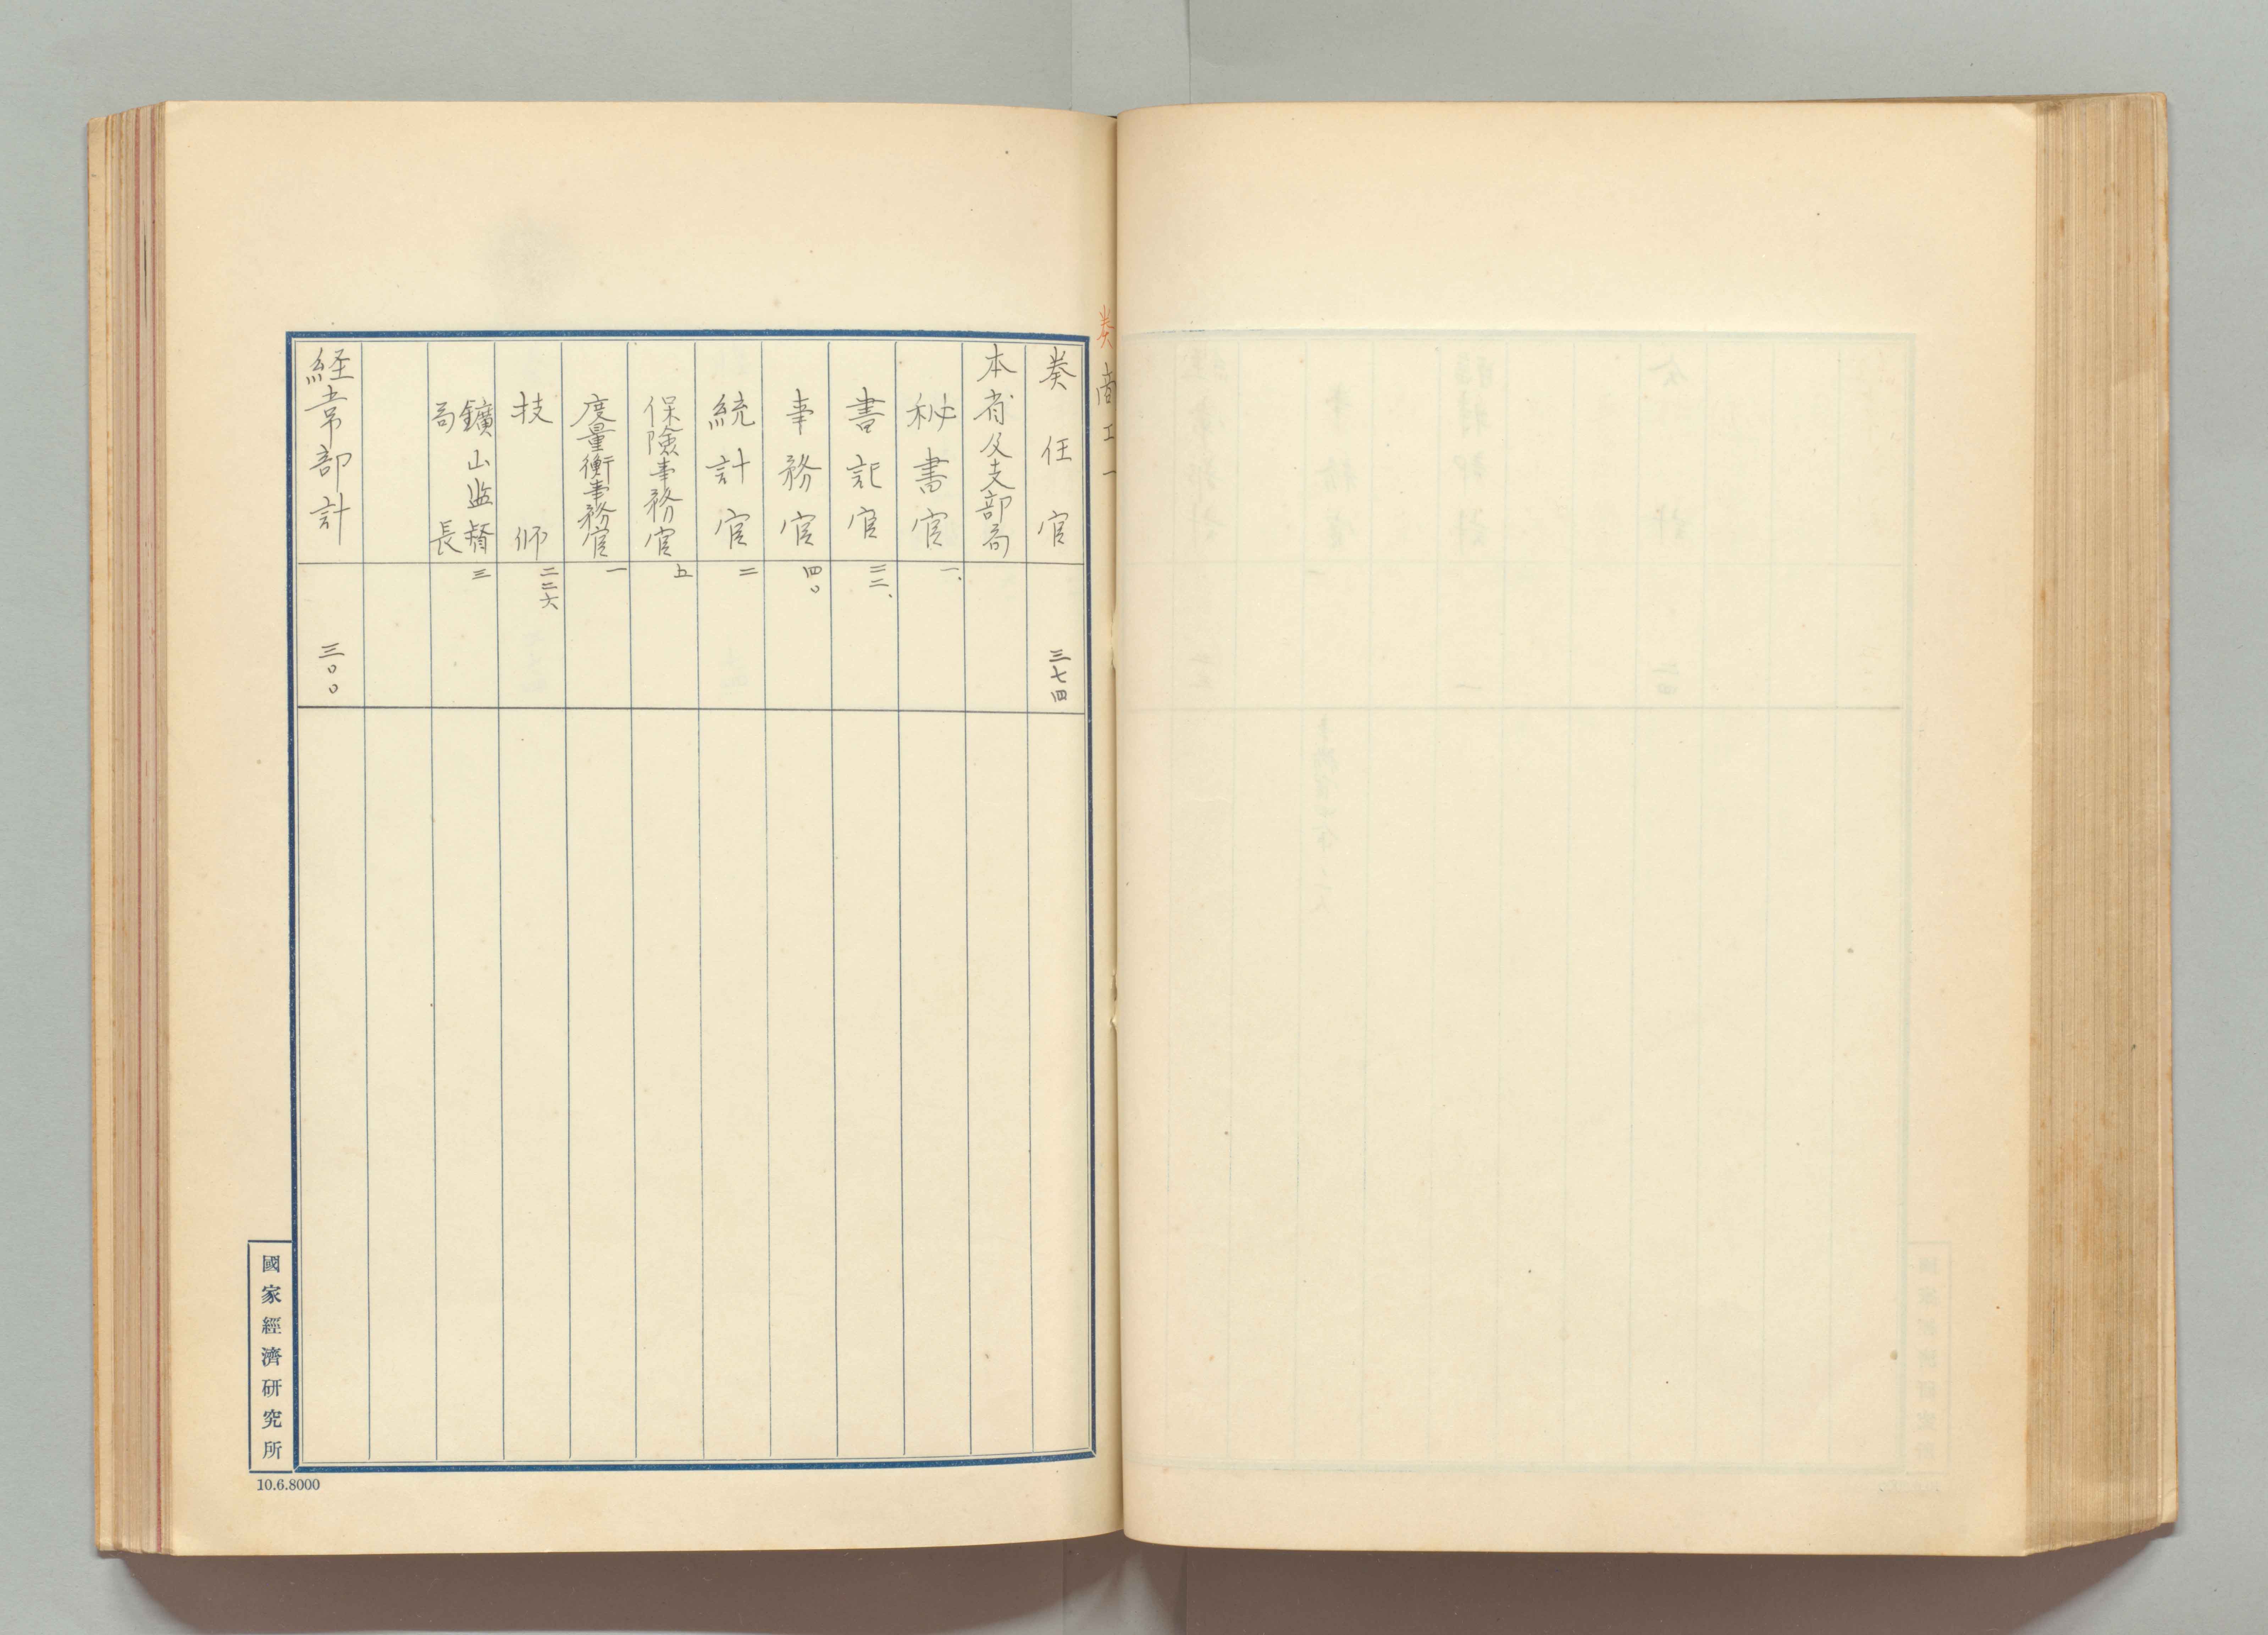 奏商工一
奏任官 三七四
本省及支部局
秘書官 一、
書記官 二二、
事務官 四〇
統計官 二
保險事務官 五
度量衡事務官 一
技師 二二六
鑛山監督局長 三
経常部計 三〇〇
國家經濟研究所
10.6.8000